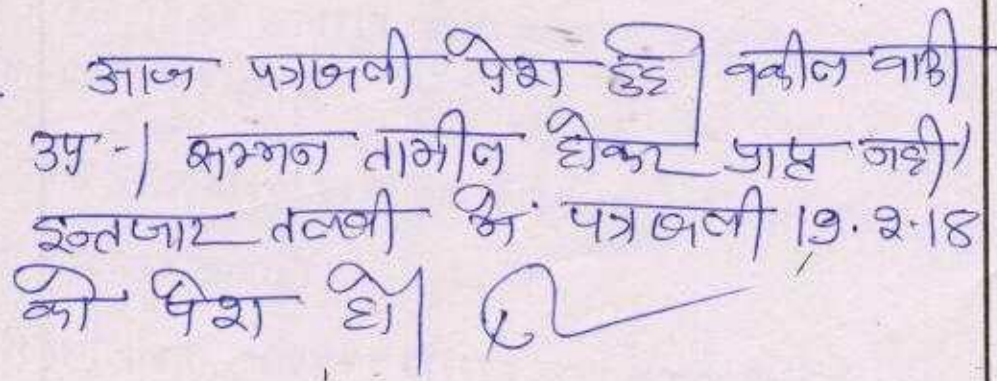 आज पत्रावली पेश हुई। वकील वादी
उप -। सम्मन तामील होकर प्राप्त नहीं।
इन्तजार तलबी में पत्रावली 19.2.18
को पेश हो।